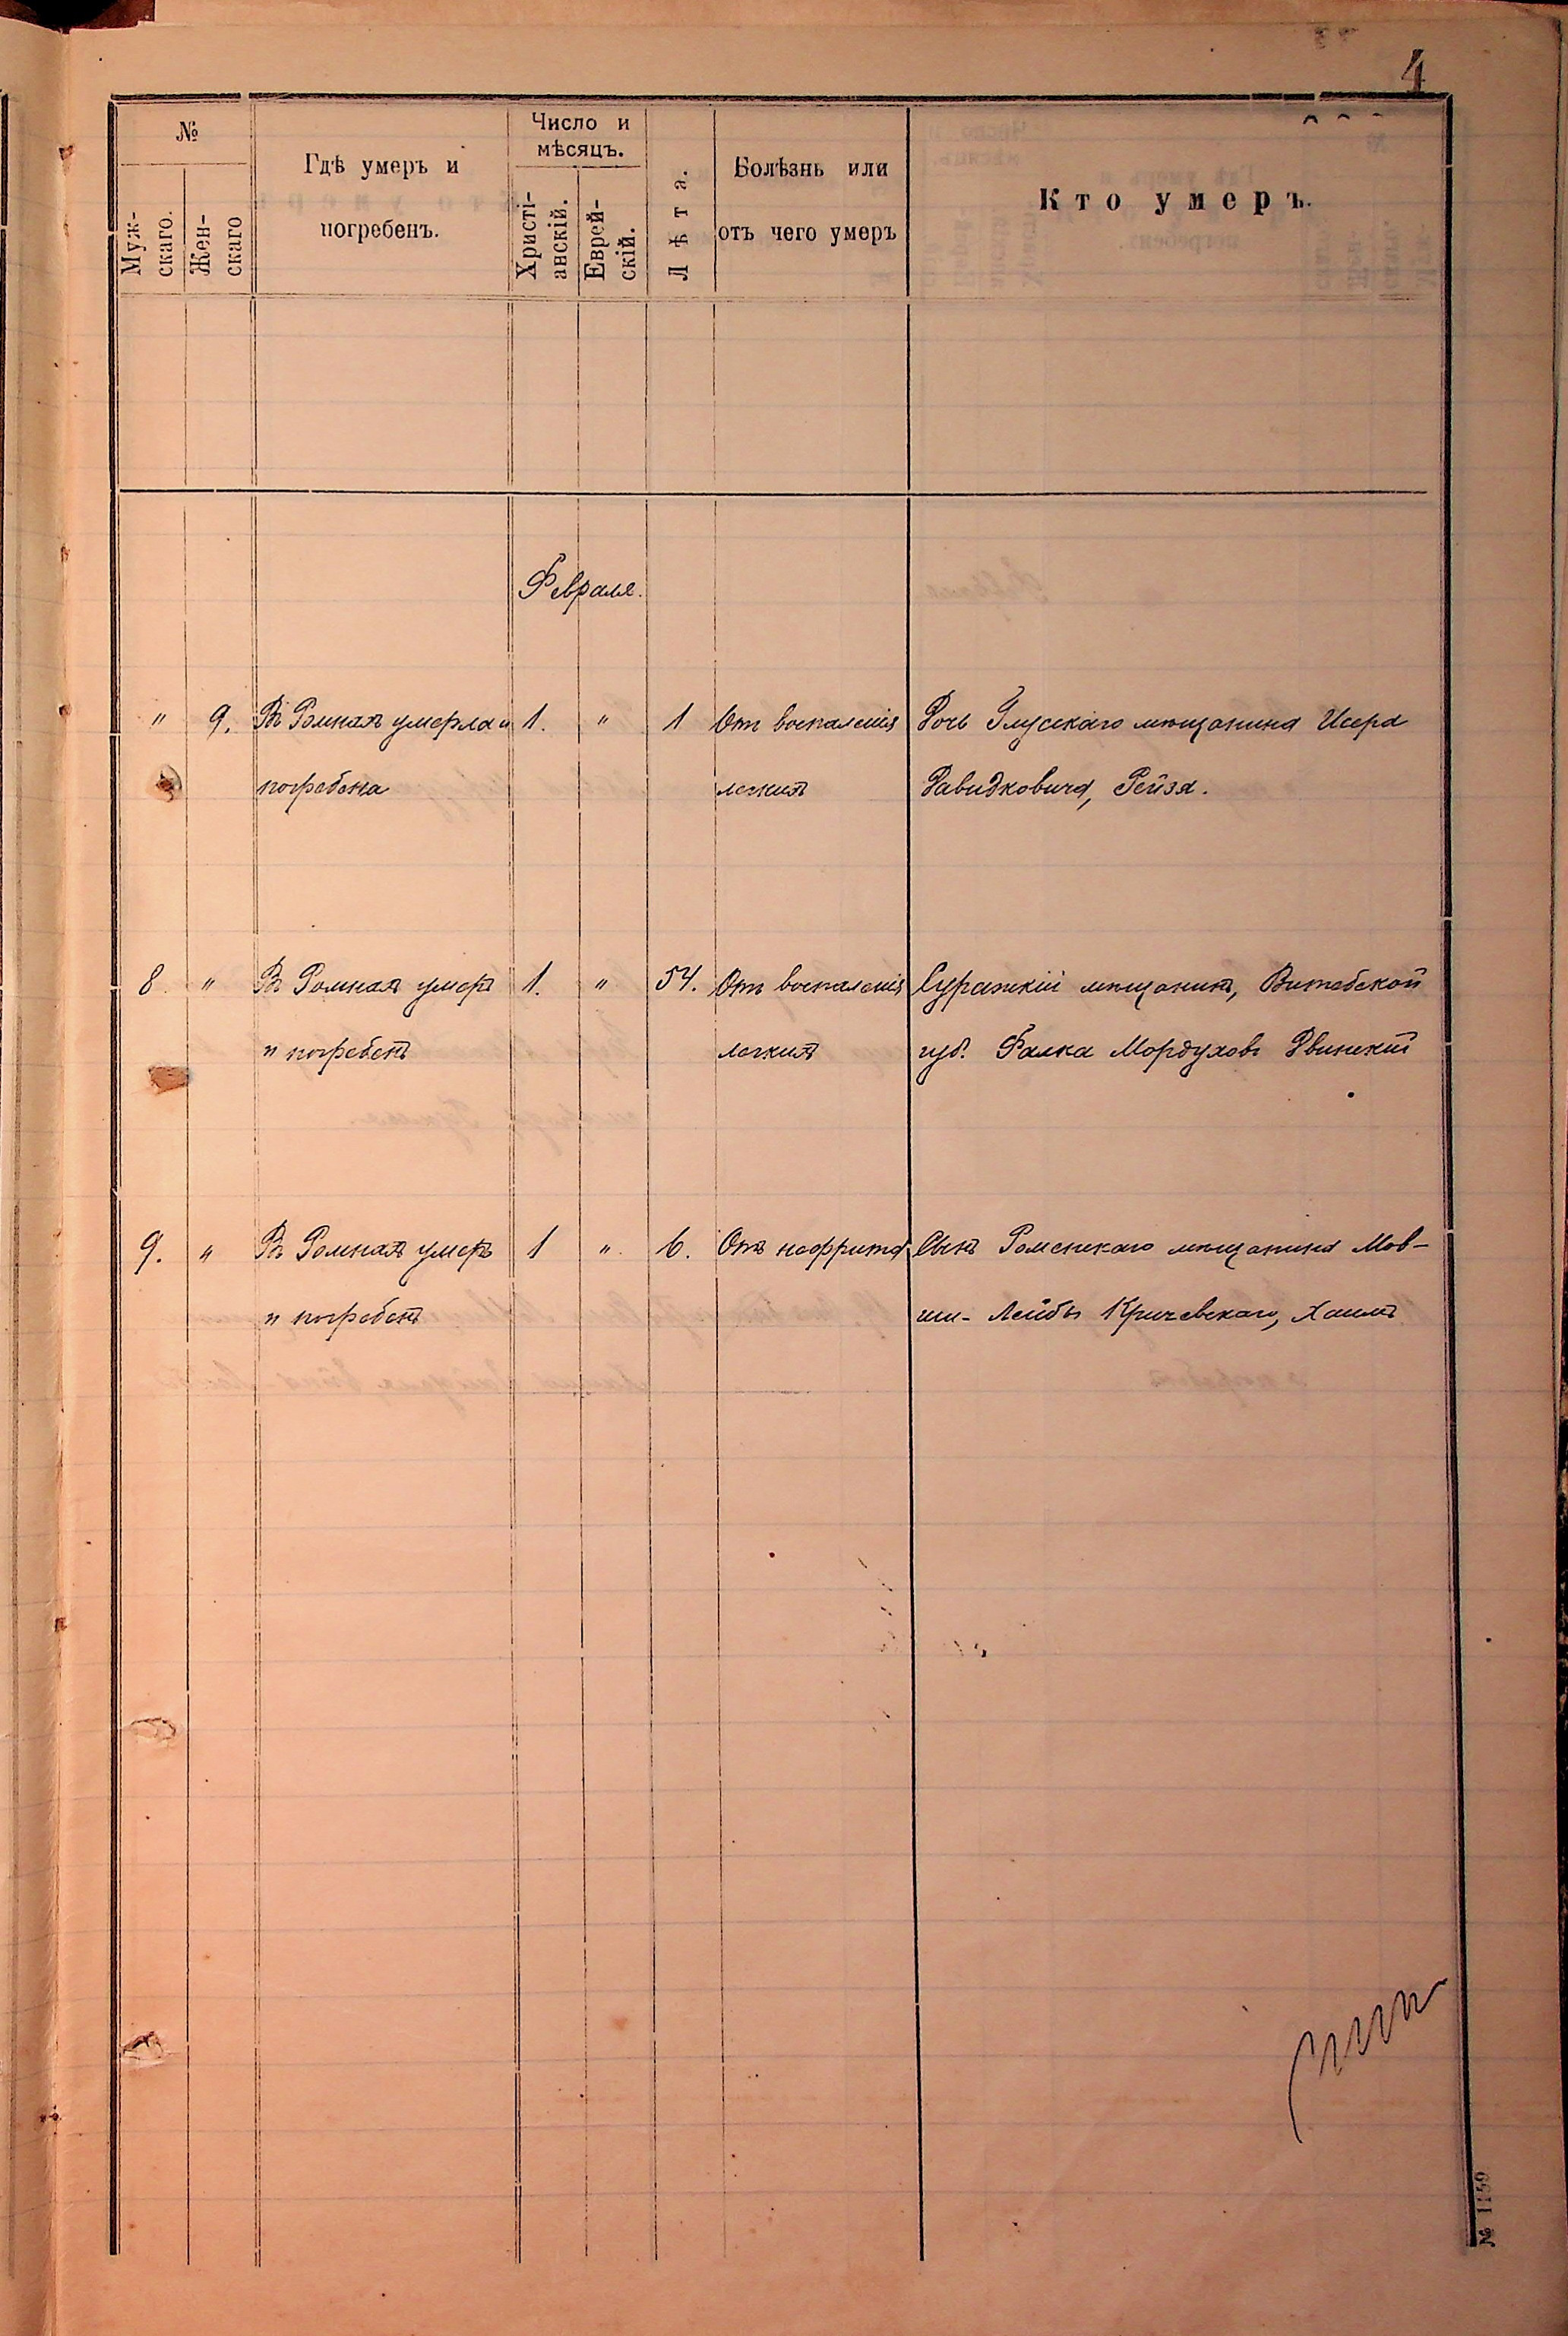 4
№
Муж-
скаго.
Жен-
скаго
Гдѣ умеръ и
погребенъ.
Число и
мѣсяцъ.
Христі-
анскій.
Еврей-
скій.
Лѣта.
Болѣзнь или
отъ чего умеръ
Кто умеръ.
Февраля.
" 9. Въ Ромнахъ умерла и 1. " 1 Отъ воспаленія Дочь Глусскаго мѣщанина Исера
погребена легкихъ Давидковича, Рейза.
8 " Въ Ромнахъ умеръ 1. " 54. Отъ воспаленія Суражскій мѣщанинъ, Витебской
и погребенъ легкихъ губ. Фалка Мордуховъ Двинскій
9. " Въ Ромнахъ умеръ 1 " 6. Отъ нефрита Сынъ Роменскаго мѣщанина Мов-
и погребенъ ши-Лейбы Кричевскаго, Хаимъ
№ 1159